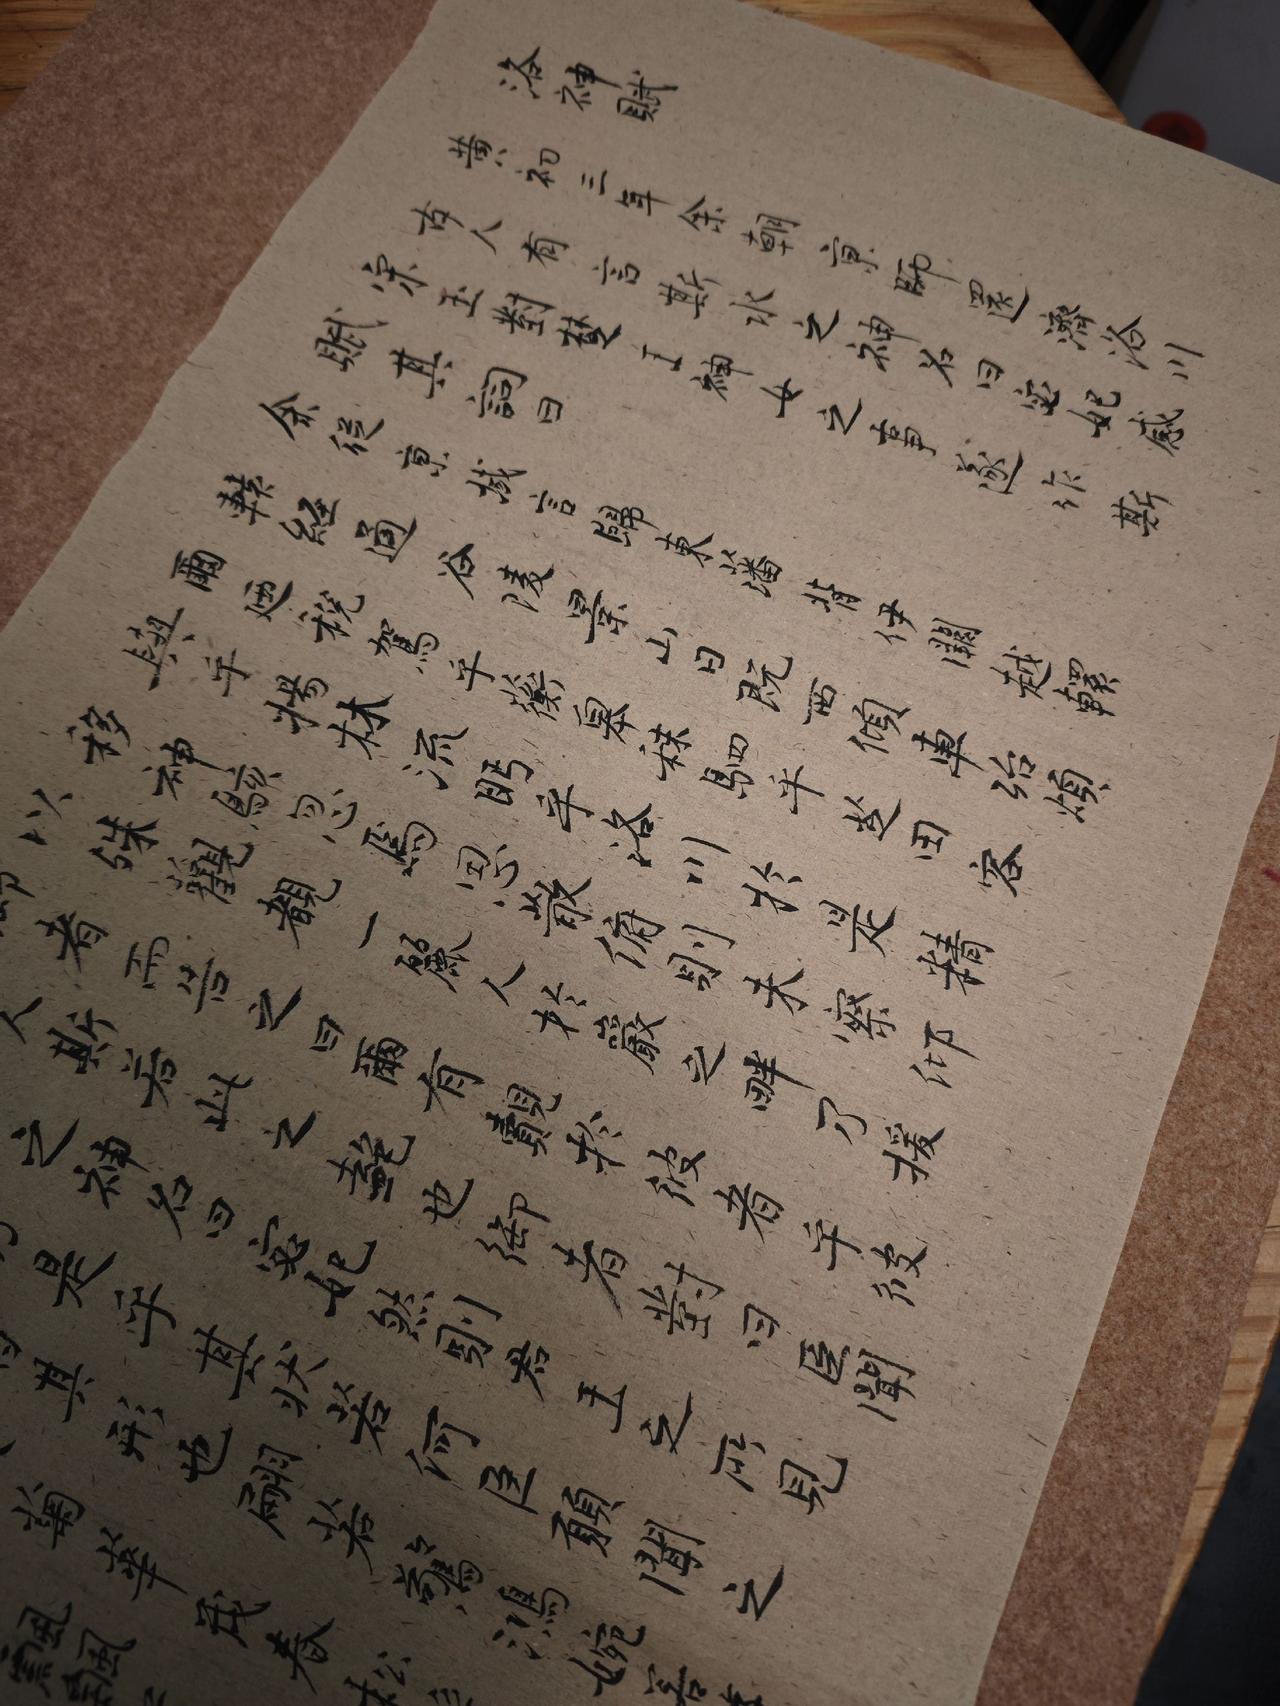 洛神賦
黄初三年余朝京師還濟洛川
古人有言斯水之神名曰宓妃感
宋玉對楚王神女之事遂作斯
賦其詞曰
余從京域言歸東藩背伊闕越轘
轅經通谷陵景山日既西傾車殆煩
爾迺税駕乎蘅皋秣駟乎芝田容
與乎楊林流眄乎洛川於是精
移神駭忽焉思散俯則未察仰
以殊觀覩一麗人於巖之畔了援
御者而告之曰爾有覿於彼者乎彼
人斯若此之艷也御者對曰臣聞
之神名曰宓妃然則君王之所見
乃是乎其狀若何臣願聞之
其形也翩若驚鴻婉
菊華茂春松